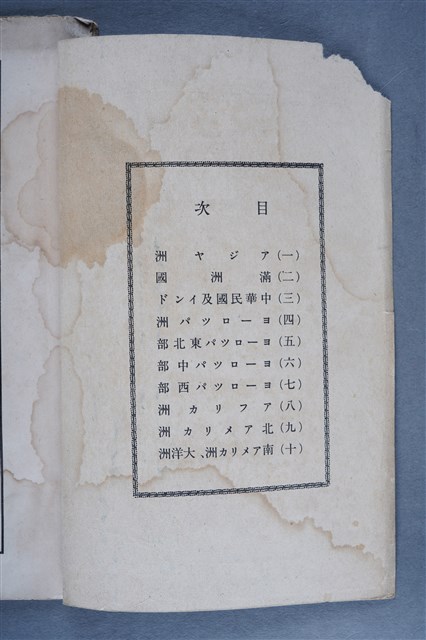 目次
(一)アジヤ洲
(二)滿洲國
(三)中華民國及インド
(四)ヨーロツパ洲
(五)ヨーロツパ東北部
(六)ヨーロツパ中部
(七)ヨーロツパ西部
(八)アフリカ洲
(九)北アメリカ洲
(十)南アメリカ洲、大洋洲